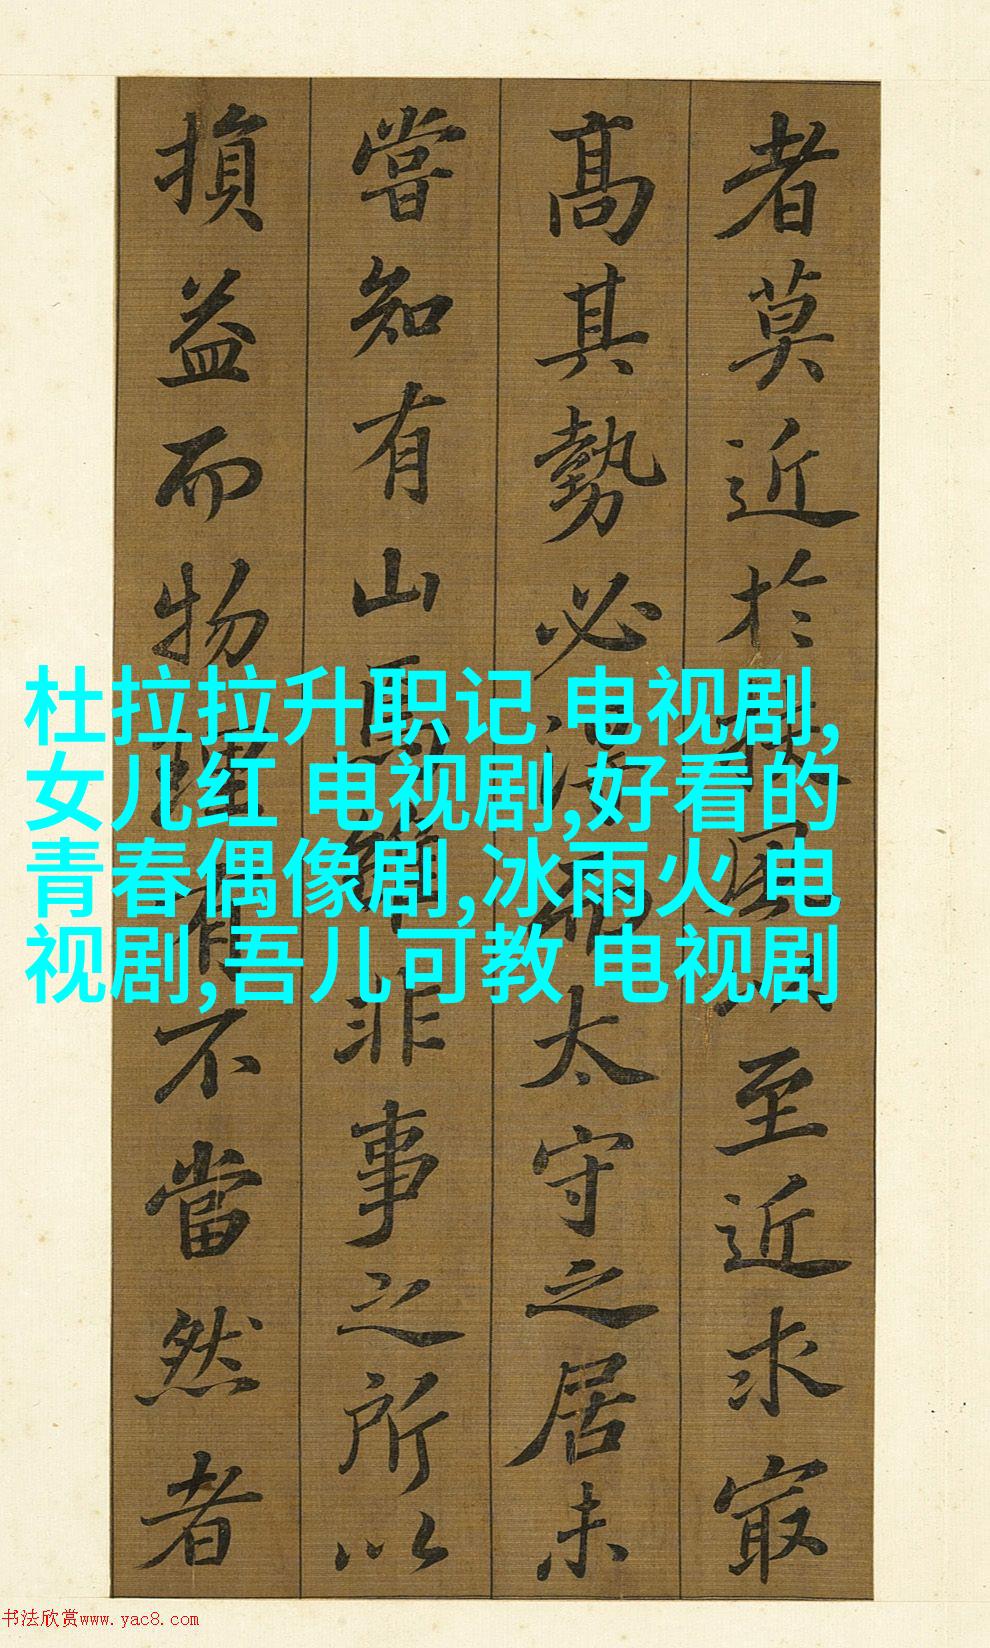 者莫近於扶風以至近求冣
高其勢必得而太守之居未
嘗知有山焉雖非事之所以
損益而物理有不當然者
杜拉拉升职记 电视剧,
女儿红 电视剧,好看的
青春偶像剧,冰雨火 电
视剧,吾儿可教 电视剧
书法欣赏www.yac8.com